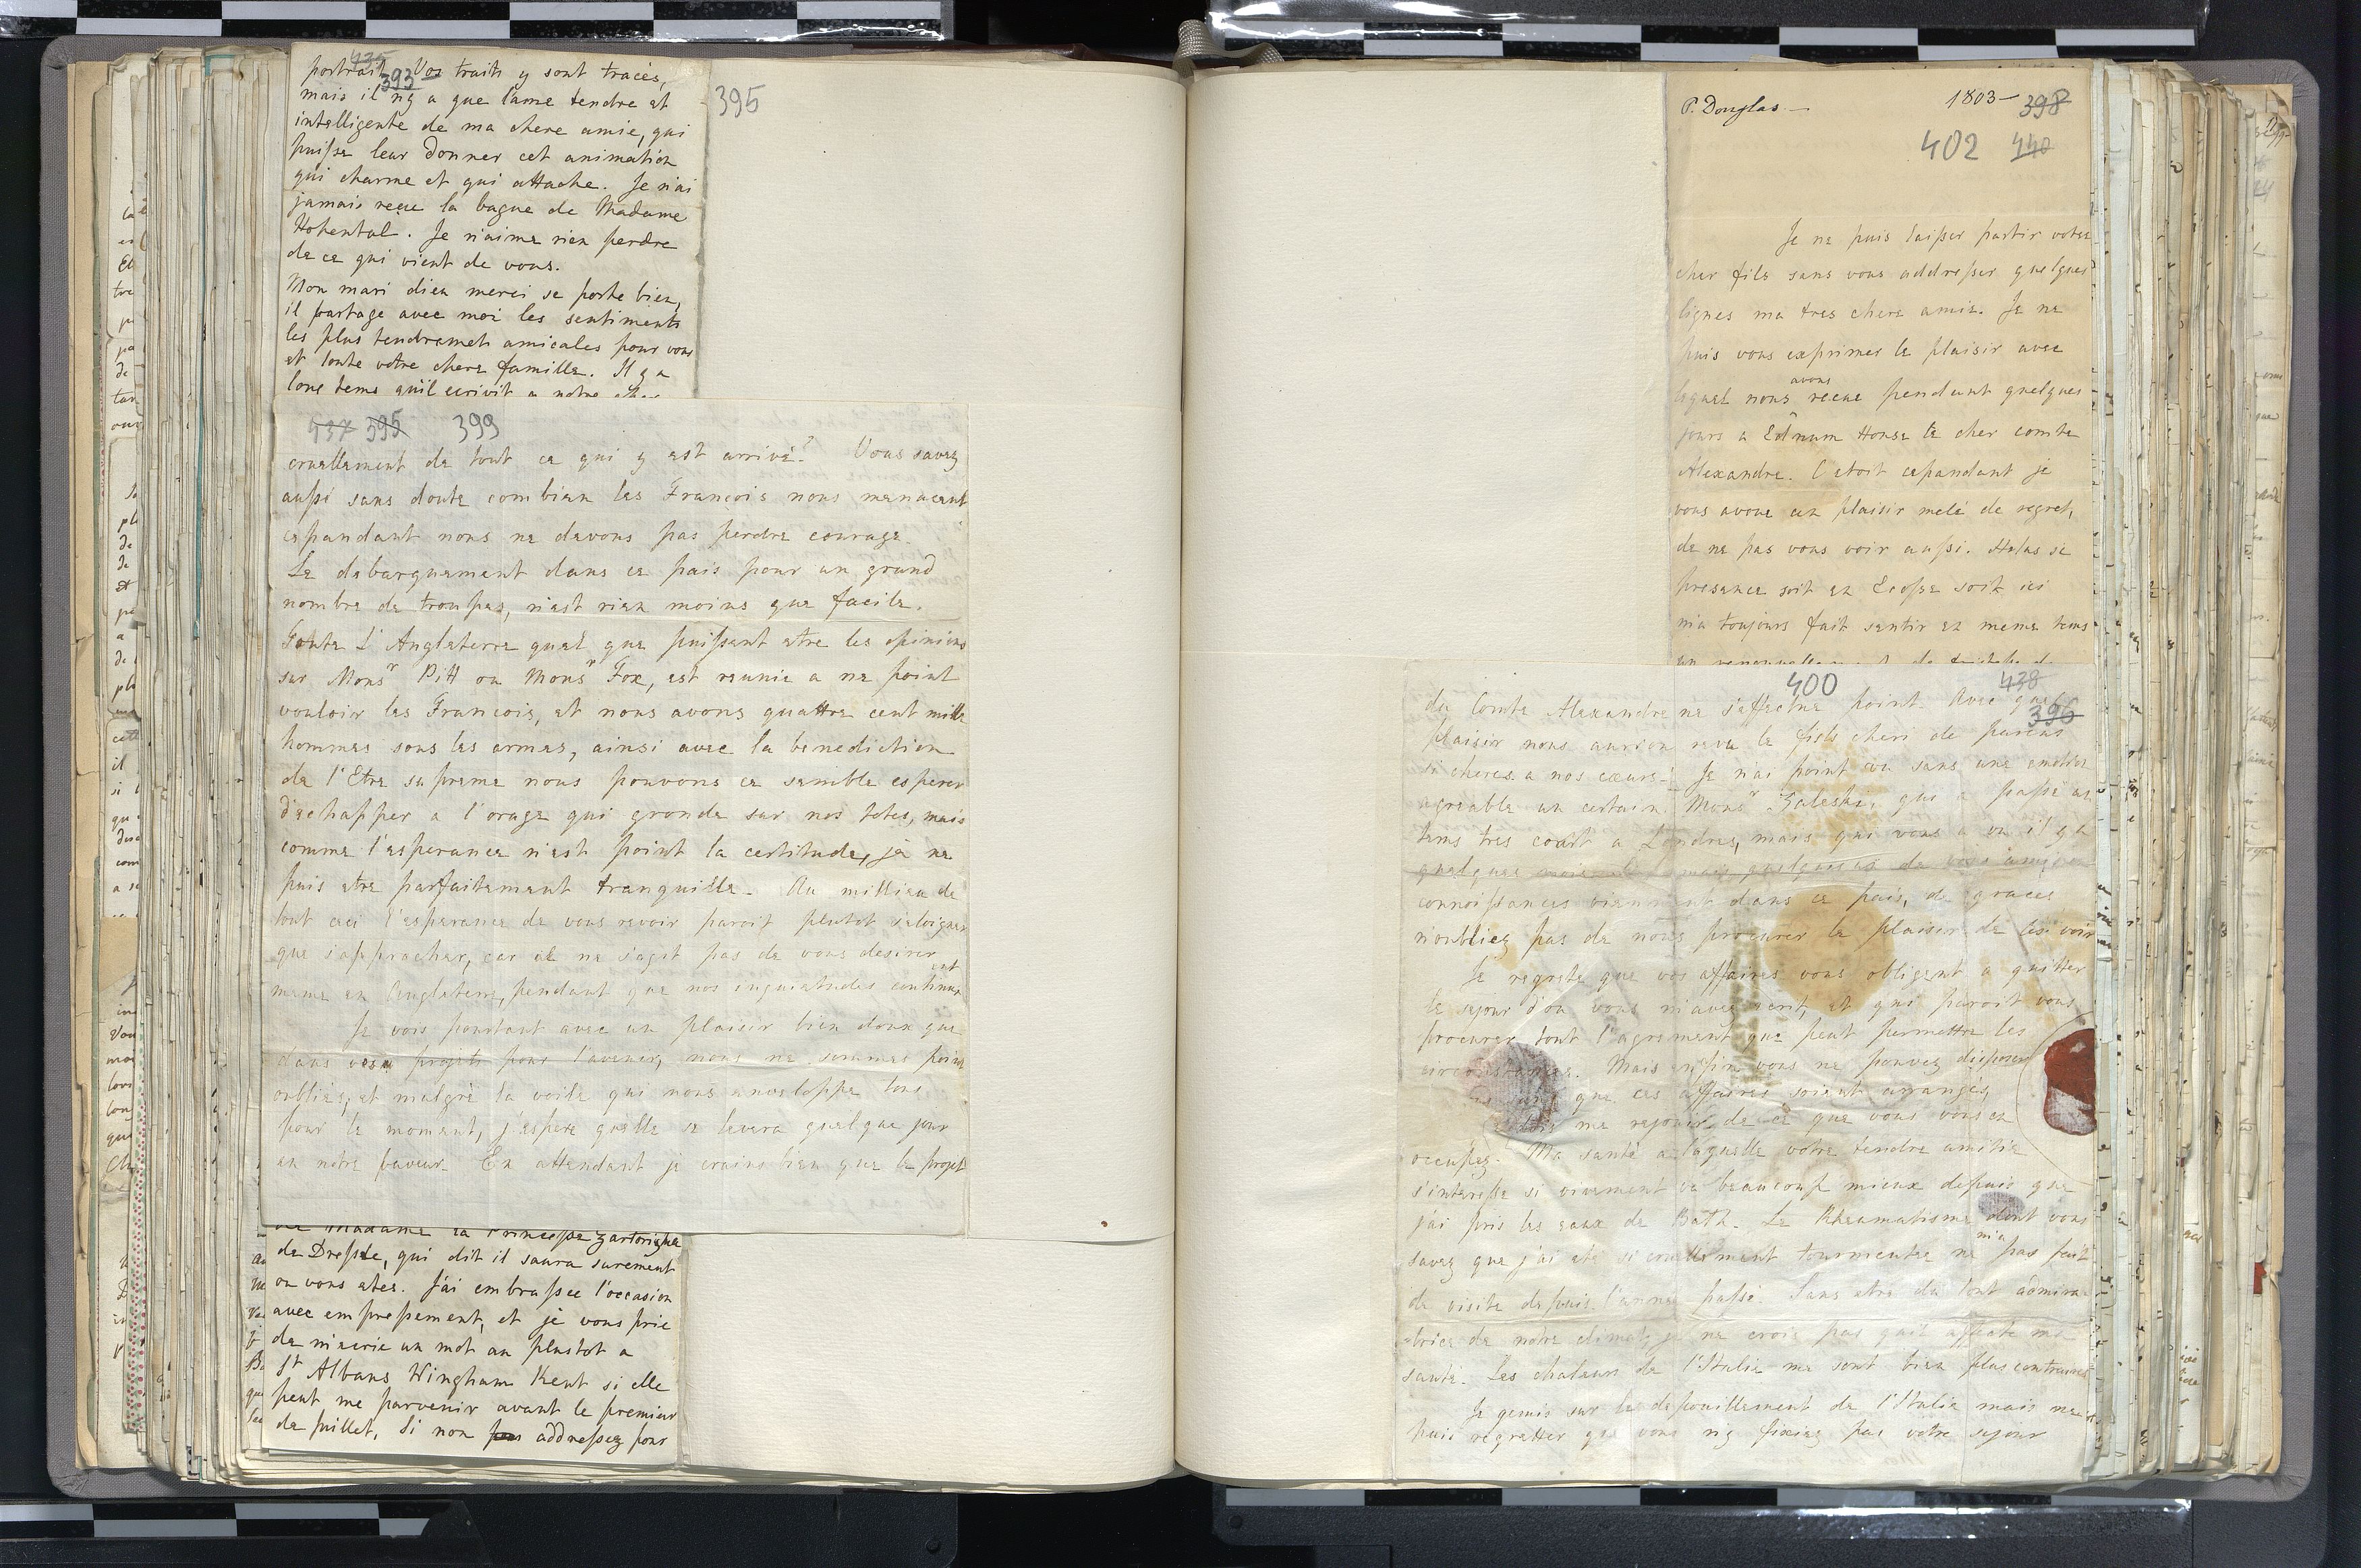 435
393
portrait. Vos traits y sont tracés,
mais il n'y a que l'ame tendre et
intelligente de ma chere amie, qui
puisse leur donner cet animation
qui charme et qui attache. Je n'ai
jamais reçue la bague de Madame
Hohental. Je n'aime rien perdre
de ce qui vient de vous.
Mon mari dieu merci se porte bien,
il partage avec moi les sentiments
les plus tendremets amicales pour vous
et toute votre chere famille. Il y a
long tems qu'il ecrivit a notre cher
395
437 395 399
cruellement de tout ce qui y est arrivé? Vous savez
aussi sans doute combien les François nous menacent
cependant nous ne devons pas perdre courage.
Le debarquement dans ce pais pour un grand
nombre de troupes, n'est rien moins que facile.
Toute L'Angleterre quel que puissent etre les opinions
sur Monsr Pitt ou Monsr Fox, est reunie a ne point
vouloir les François, et nous avons quattre cent mille
hommes sous les armes, ainsi avec la benediction
de l'Etre supreme nous pouvons ce semble esperer
d'echapper a l'orage qui gronde sur nos tetes, mais
comme l'esperance n'est point la certitude, je ne
puis etre parfaitement tranquille. Au millieu de
tout ceci l'esperance de vous revoir paroit plutot s'eloigner
que s'approcher, car il ne s'agit pas de vous desirer
meme en Angleterre, pendant que nos inquietudes continuent
Je vois pourtant avec un plaisir bien doux que
dans vos projets pour l'avenir, nous ne sommes point
oubliés, et malgré la voile qui nous enveloppe tous
pour le moment, j'espere qu'elle se levera quelque jour
en notre faveur. En attendant je crains bien que le projet
de Madame la Princesse Zartorighe
de Dresde, qui dit il saura surement
ou vous etes. J'ai embrassee l'occasion
avec empressement, et je vous prie
de m'ecrir un mot au plustot a
St Albans Wingham Kent si elle
peut me parvenir avant le premier
de Juillet, Si non addressez pour
P. Douglas — 1803 — 398
402 440
Je ne puis laisser partir votre
cher fils sans vous addresser quelques
lignes ma tres chere amie. Je ne
puis vous exprimer le plaisir avec
lequel nous avons recue pendant quelques
jours a Ednum House le cher comte
Alexandre. C'etoit cependant je
vous avoue un plaisir melé de regret,
de ne pas vous voir aussi. Helas sa
presence soit en Ecosse soit ici
m'a toujours fait sentir en meme tems
400 438
396
du Comte Alexandre ne s'affectue point. Avec quel
plaisir nous aurion revu le fils cheri de parens
si cheres a nos cœurs! Je n'ai point vu sans une emotion
agreable un certain Monsr Zaleski, qui a passé un
tems tres court a Londres, mais qui vous a vu il y a
quelques mois
connoissances viennent dans ce pais, de graces
n'oubliez pas de nous procurer le plaisir de les voir
Je regrete que vos affaires vous obligent a quitter
le sejour d'ou vous m'avez ecrit, et qui paroit vous
procurer tout l'agrement que peut permettre les
circonstances. Mais enfin vous ne pouvez disposer
que ces affaires soient arrangés,
me rejouir de ce que vous vous en
occupez. Ma santé a laquelle votre tendre amitié
s'interesse si vivement va beaucoup mieux depuis que
j'ai pris les eaux de Bath. Le Rheumatisme dont vous
savez que j'ai eté si cruellement tourmentee ne m'a pas fait
de visite depuis l'année passé. Sans etre du tout admira-
-trice de notre climat, je ne crois pas qu'il affecte ma
santé. Les chaleurs de l'Italie me sont bien plus contraires
Je gemis sur le depouillement de l'Italie mais ne
puis regretter que vous n'y fixiez pas votre sejour